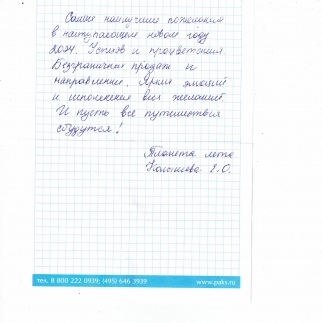 Самые наилучшие пожелания
в наступающем новом году
2024. Успехов и процветания
Безграничных продаж и
направлений. Ярких эмоций
и исполнения всех желаний
И пусть все путешествия
сбудутся!
Планета лета
Ю.О.
тел. 8 800 222 0939; (495) 646 3939
www.paks.ru